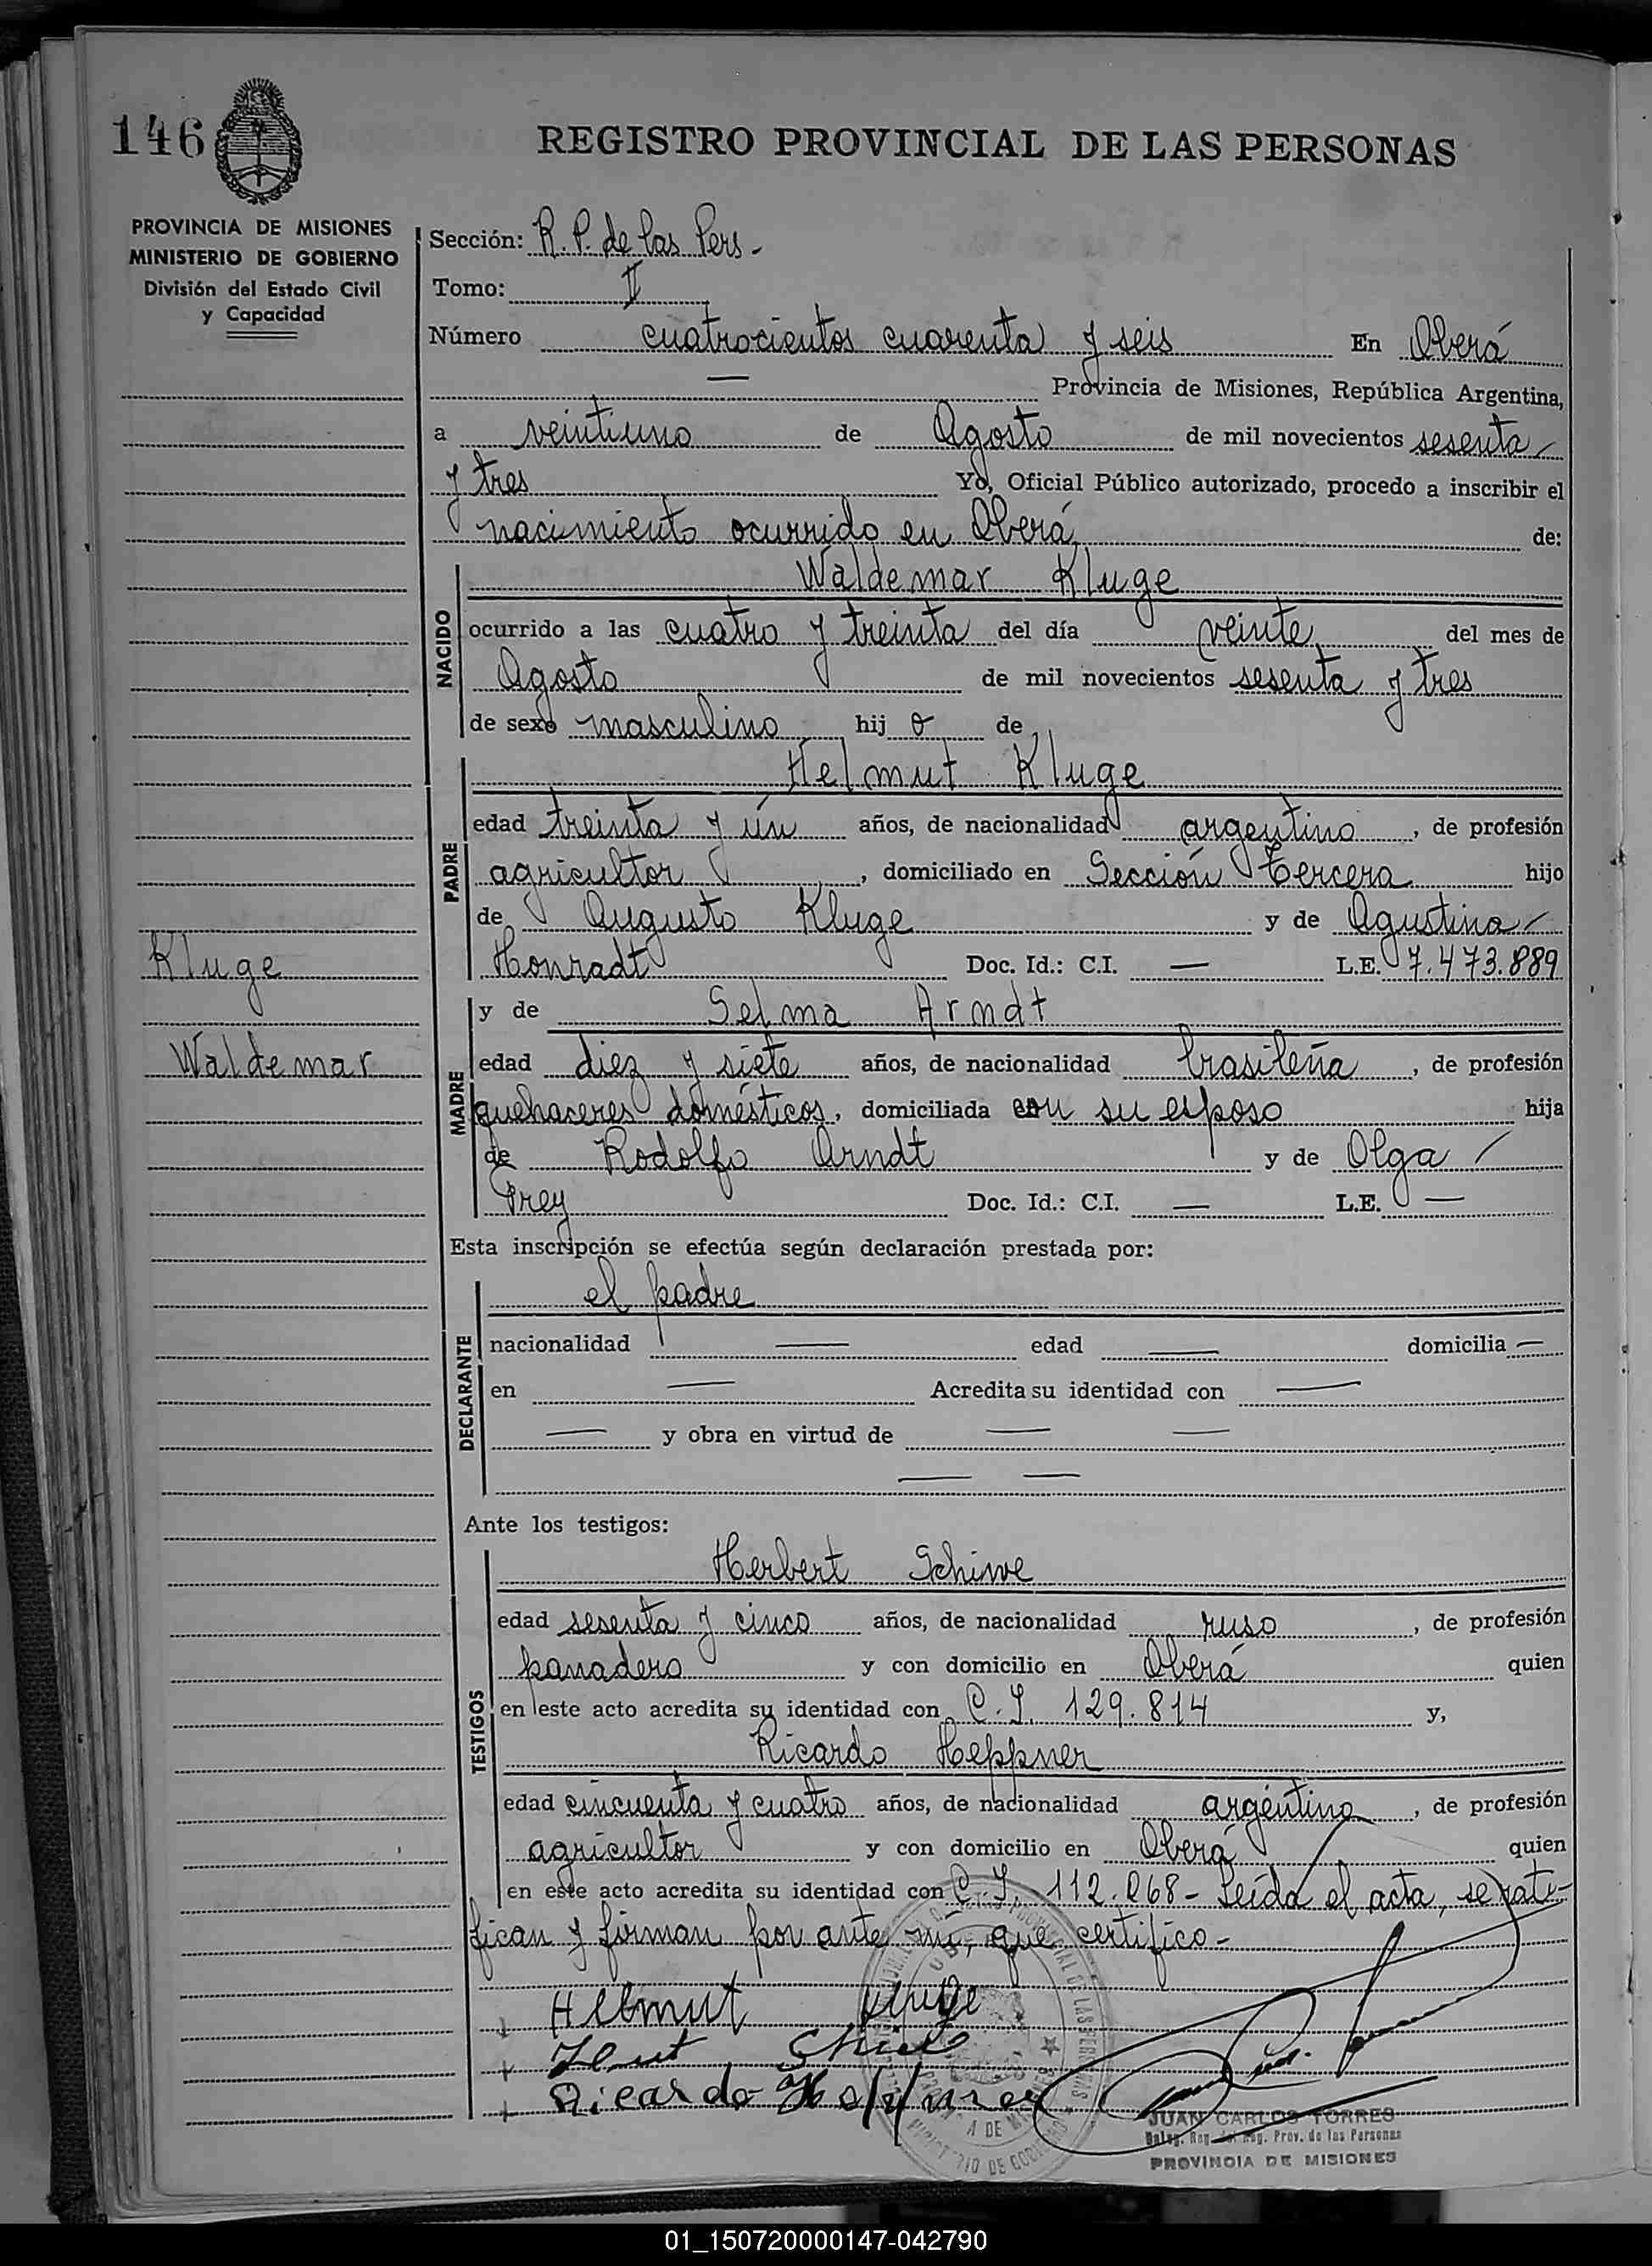 146
REGISTRO PROVINCIAL DE LAS PERSONAS
PROVINCIA DE MISIONES
MINISTERIO DE GOBIERNO
División del Estado Civil
y Capacidad
Sección: R. P. de las Pers -
Tomo: II
Número cuatrocientos cuarenta y seis En Oberá
— Provincia de Misiones, República Argentina,
a veintiuno de Agosto de mil novecientos sesenta
y tres Yo, Oficial Público autorizado, procedo a inscribir el
nacimiento ocurrido en Oberá de:
NACIDO
Waldemar Kluge
ocurrido a las cuatro y treinta del día veinte del mes de
Agosto de mil novecientos sesenta y tres
de sexo masculino hij o de
PADRE
Helmut Kluge
edad treinta y ún años, de nacionalidad argentino, de profesión
agricultor, domiciliado en Sección tercera hijo
de Augusto Kluge y de Agustina
Honradt Doc. Id.: C.I. — L.E. 7.473.889
Kluge
Waldemar
MADRE
y de Selma Arndt
edad diez y siete años, de nacionalidad brasileña, de profesión
quehaceres domésticos, domiciliada con su esposo hija
de Rodolfo Arndt y de Olga
Prey Doc. Id.: C.I. — L.E. —
Esta inscripción se efectúa según declaración prestada por:
DECLARANTE
el padre
nacionalidad — edad — domicilia —
en — Acredita su identidad con —
— y obra en virtud de — —
— —
Ante los testigos:
TESTIGOS
Herbert Schiwe
edad sesenta y cinco años, de nacionalidad ruso, de profesión
panadero y con domicilio en Oberá quien
en este acto acredita su identidad con C. I. 129.814 y,
Ricardo Heppner
edad cincuenta y cuatro años, de nacionalidad argentino, de profesión
agricultor y con domicilio en Oberá quien
en este acto acredita su identidad con C. I. 112.068 - Leída el acta, se rati-
fican y firman por ante mí, que certifico -
Helmut Kluge
Ricardo Heppner
JUAN CARLOS TORRES
Reg. Prov. de las Personas
PROVINCIA DE MISIONES
01_150720000147-042790